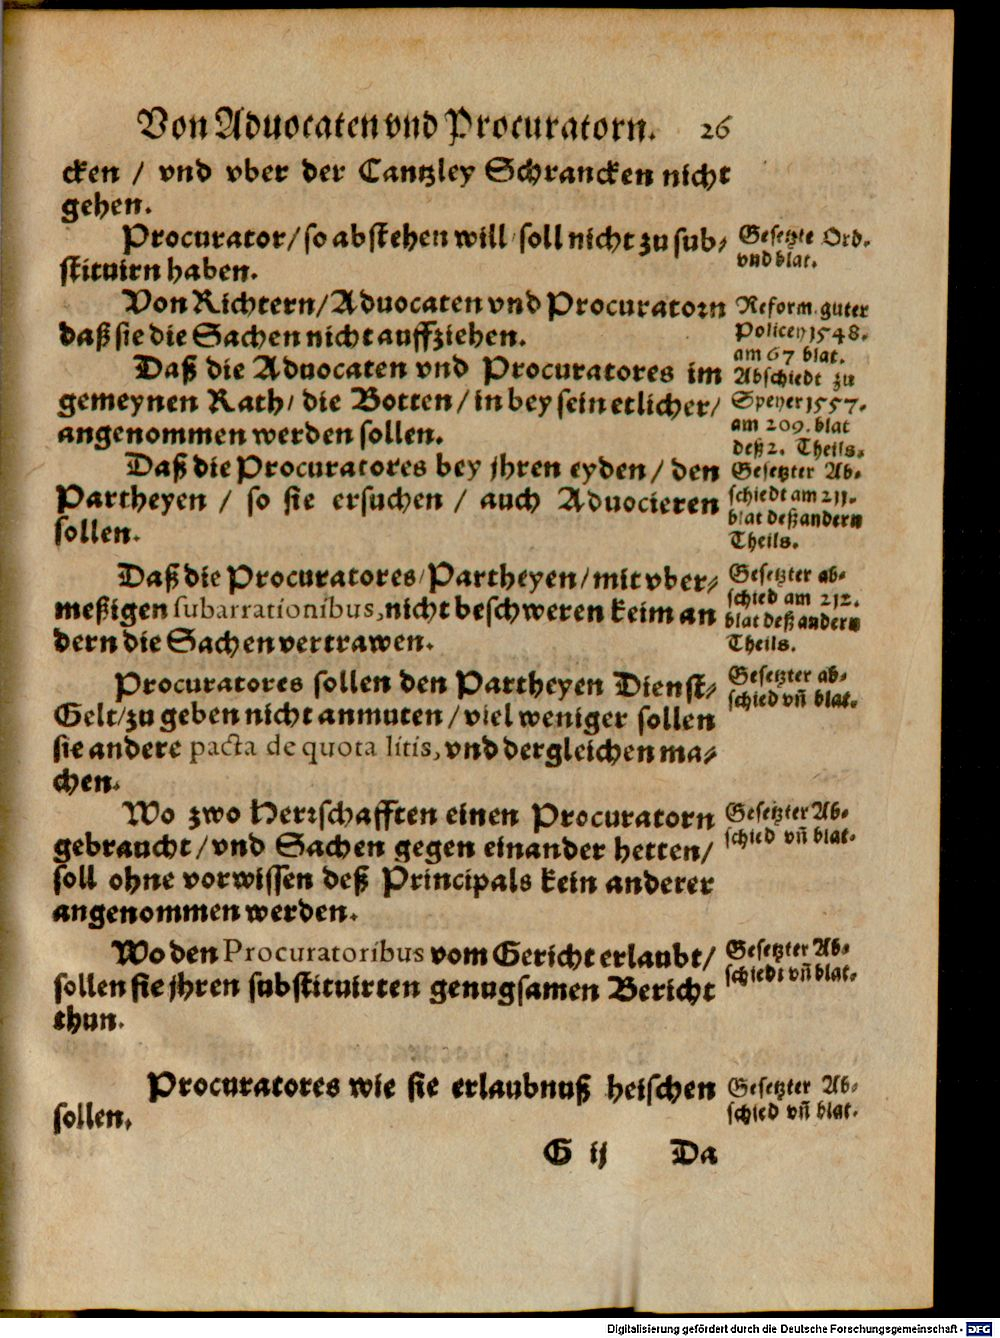 Von Aduocaten vnd Procuratorn. 26
cken / vnd vber der Cantzley Schrancken nicht
gehen.
Procurator / so abstehen will / soll nicht zu sub-
stituirn haben.
Gesetzte Ord.
vnd blat.
Von Richtern / Aduocaten vnd Procuratorn
daß sie die Sachen nicht auffziehen.
Reform. guter
Policey 1548.
am 67 blat.
Daß die Aduocaten vnd Procuratores im
gemeynen Rath / die Botten / in bey sein etlicher /
angenommen werden sollen.
Abschiedt zu
Speyer 1557.
am 209. blat
deß 2. Theils.
Daß die Procuratores bey jhren eyden / den
Partheyen / so sie ersuchen / auch Aduocieren
sollen.
Gesetzter Ab-
schiedt am 211.
blat deß andern
Theils.
Daß die Procuratores / Partheyen / mit vber-
meßigen subarrationibus, nicht beschweren keim an
dern die Sachen vertrawen.
Gesetzter ab-
schied am 212.
blat deß andern
Theils.
Procuratores sollen den Partheyen Dienst-
Gelt / zu geben nicht anmuten / viel weniger sollen
sie andere pacta de quota litis, vnd dergleichen ma-
chen.
Gesetzter ab-
schied vñ blat.
Wo zwo Herrschafften einen Procuratorn
gebraucht / vnd Sachen gegen einander hetten /
soll ohne vorwissen deß Principals kein anderer
angenommen werden.
Gesetzter Ab-
schied vñ blat.
Wo den Procuratoribus vom Gericht erlaubt /
sollen sie jhren substituirten genugsamen Bericht
thun.
Gesetzter Ab-
schiedt vñ blat.
Procuratores wie sie erlaubnuß heischen
sollen.
Gesetzter Ab-
schied vñ blat.
G ij Da
Digitalisierung gefördert durch die Deutsche Forschungsgemeinschaft - DFG